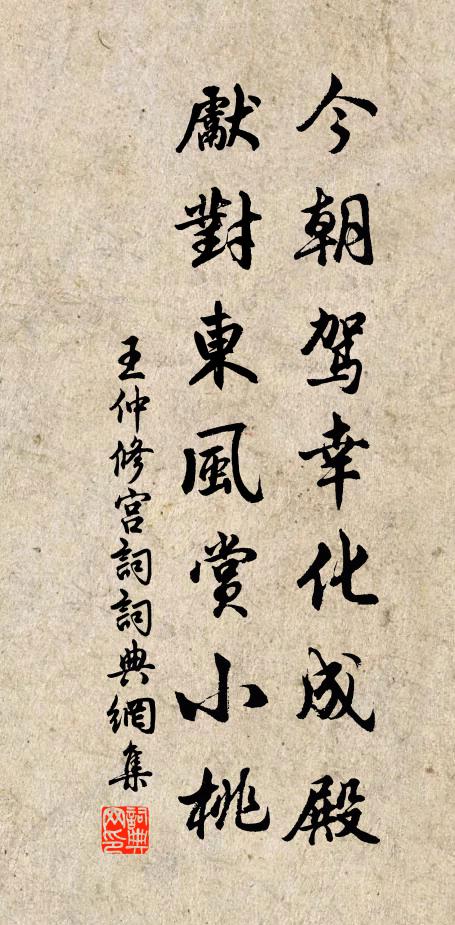 今朝駕幸化成殿
獻對東風賞小桃
王仲修宮詞詞典網集
詞典網印